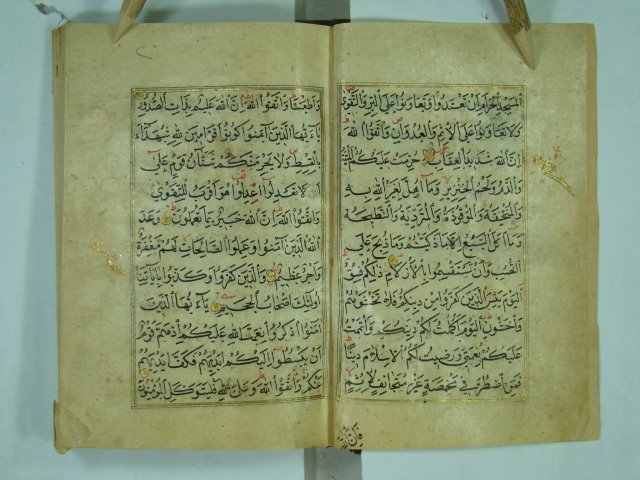 المسجد الحرام ان تعتدوا وتعاونوا على البر والتقوى
ولا تعاونوا على الاثم والعدوان واتقوا الله
ان الله شديد العقاب حرمت عليكم الميتة
والدم ولحم الخنزير وما اهل لغير الله به
والمنخنقة والموقوذة والمتردية والنطيحة
وما اكل السبع الا ما ذكيتم وما ذبح على
النصب وان تستقسموا بالازلام ذلكم فسق
اليوم يئس الذين كفروا من دينكم فلا تخشوهم
واخشون اليوم اكملت لكم دينكم واتممت
عليكم نعمتي ورضيت لكم الاسلام دينا
فمن اضطر في مخمصة غير متجانف لاثم
فان الله
واطعنا واتقوا الله ان الله عليم بذات الصدور
ياءيها الذين آمنوا كونوا قوامين لله شهداء
بالقسط ولا يجرمنكم شنآن قوم على
الا تعدلوا اعدلوا هو اقرب للتقوى
واتقوا الله ان الله خبير بما تعملون وعد
الله الذين آمنوا وعملوا الصالحات لهم مغفرة
واجر عظيم والذين كفروا وكذبوا باياتنا
اولئك اصحاب الجحيم ياءيها الذين
امنوا اذكروا نعمت الله عليكم اذ هم قوم
ان يبسطوا اليكم ايديهم فكف ايديهم
عنكم واتقوا الله وعلى الله فليتوكل المؤمنون